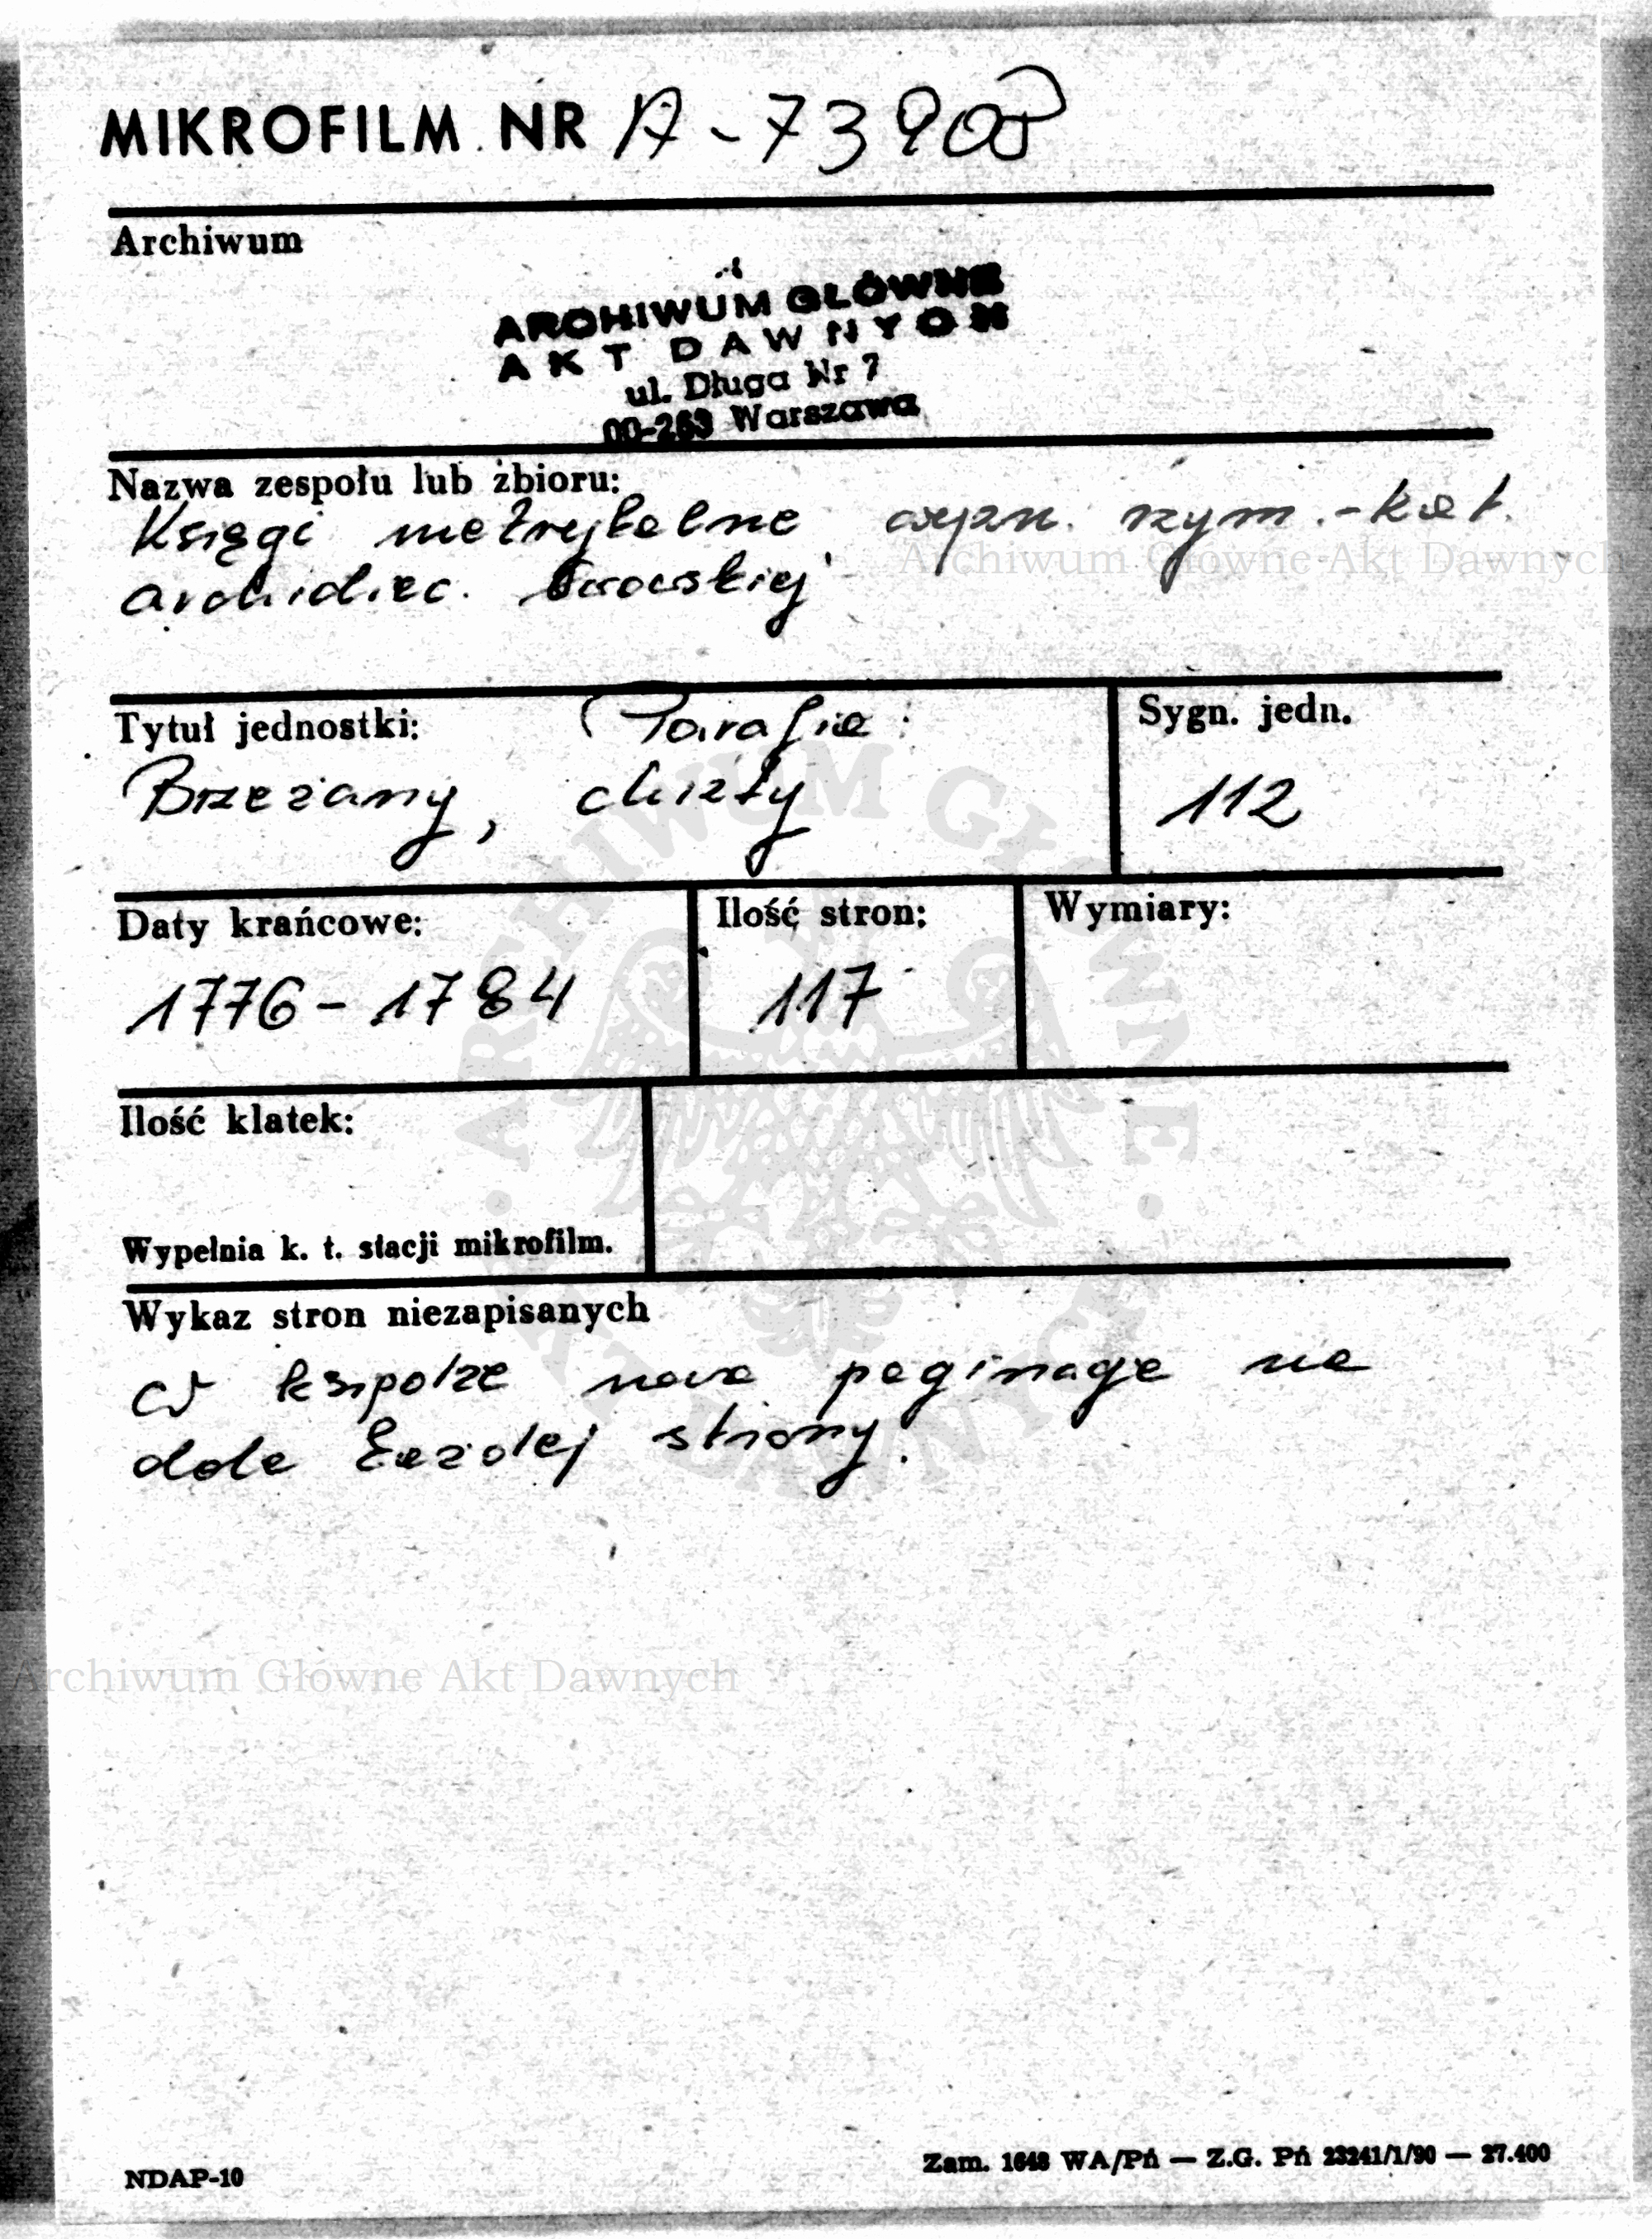 MIKROFILM NR A-73908
Archiwum
ARCHIWUM GŁÓWNE
AKT DAWNYCH
ul. Długa Nr 7
00-263 Warszawa
Nazwa zespołu lub zbioru:
Księgi metrykalne wyzn. rzym.-kat.
Archiwum Główne Akt Dawnych
archidiec. lwowskiej
Tytuł jednostki: Parafia:
Sygn. jedn.
Brzeżany, chrzty
112
Daty krańcowe:
Ilość stron:
Wymiary:
1776-1784
117
Ilość klatek:
Wypełnia k. t. stacji mikrofilm.
ARCHIWUM GŁÓWNE
AKT DAWNYCH
Wykaz stron niezapisanych
W księdze nowa paginacja na
dole każdej strony.
Archiwum Główne Akt Dawnych
NDAP-10
Zam. 1648 WA/Pń — Z.G. Pń 23241/1/90 — 27.400